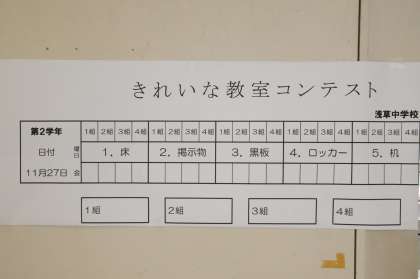 きれいな教室コンテスト
浅草中学校
第2学年 1組 2組 3組 4組 1組 2組 3組 4組 1組 2組 3組 4組 1組 2組 3組 4組 1組 2組 3組 4組
日付 曜日 1．床 2．掲示物 3．黒板 4．ロッカー 5．机
11月27日 金
1組 2組 3組 4組